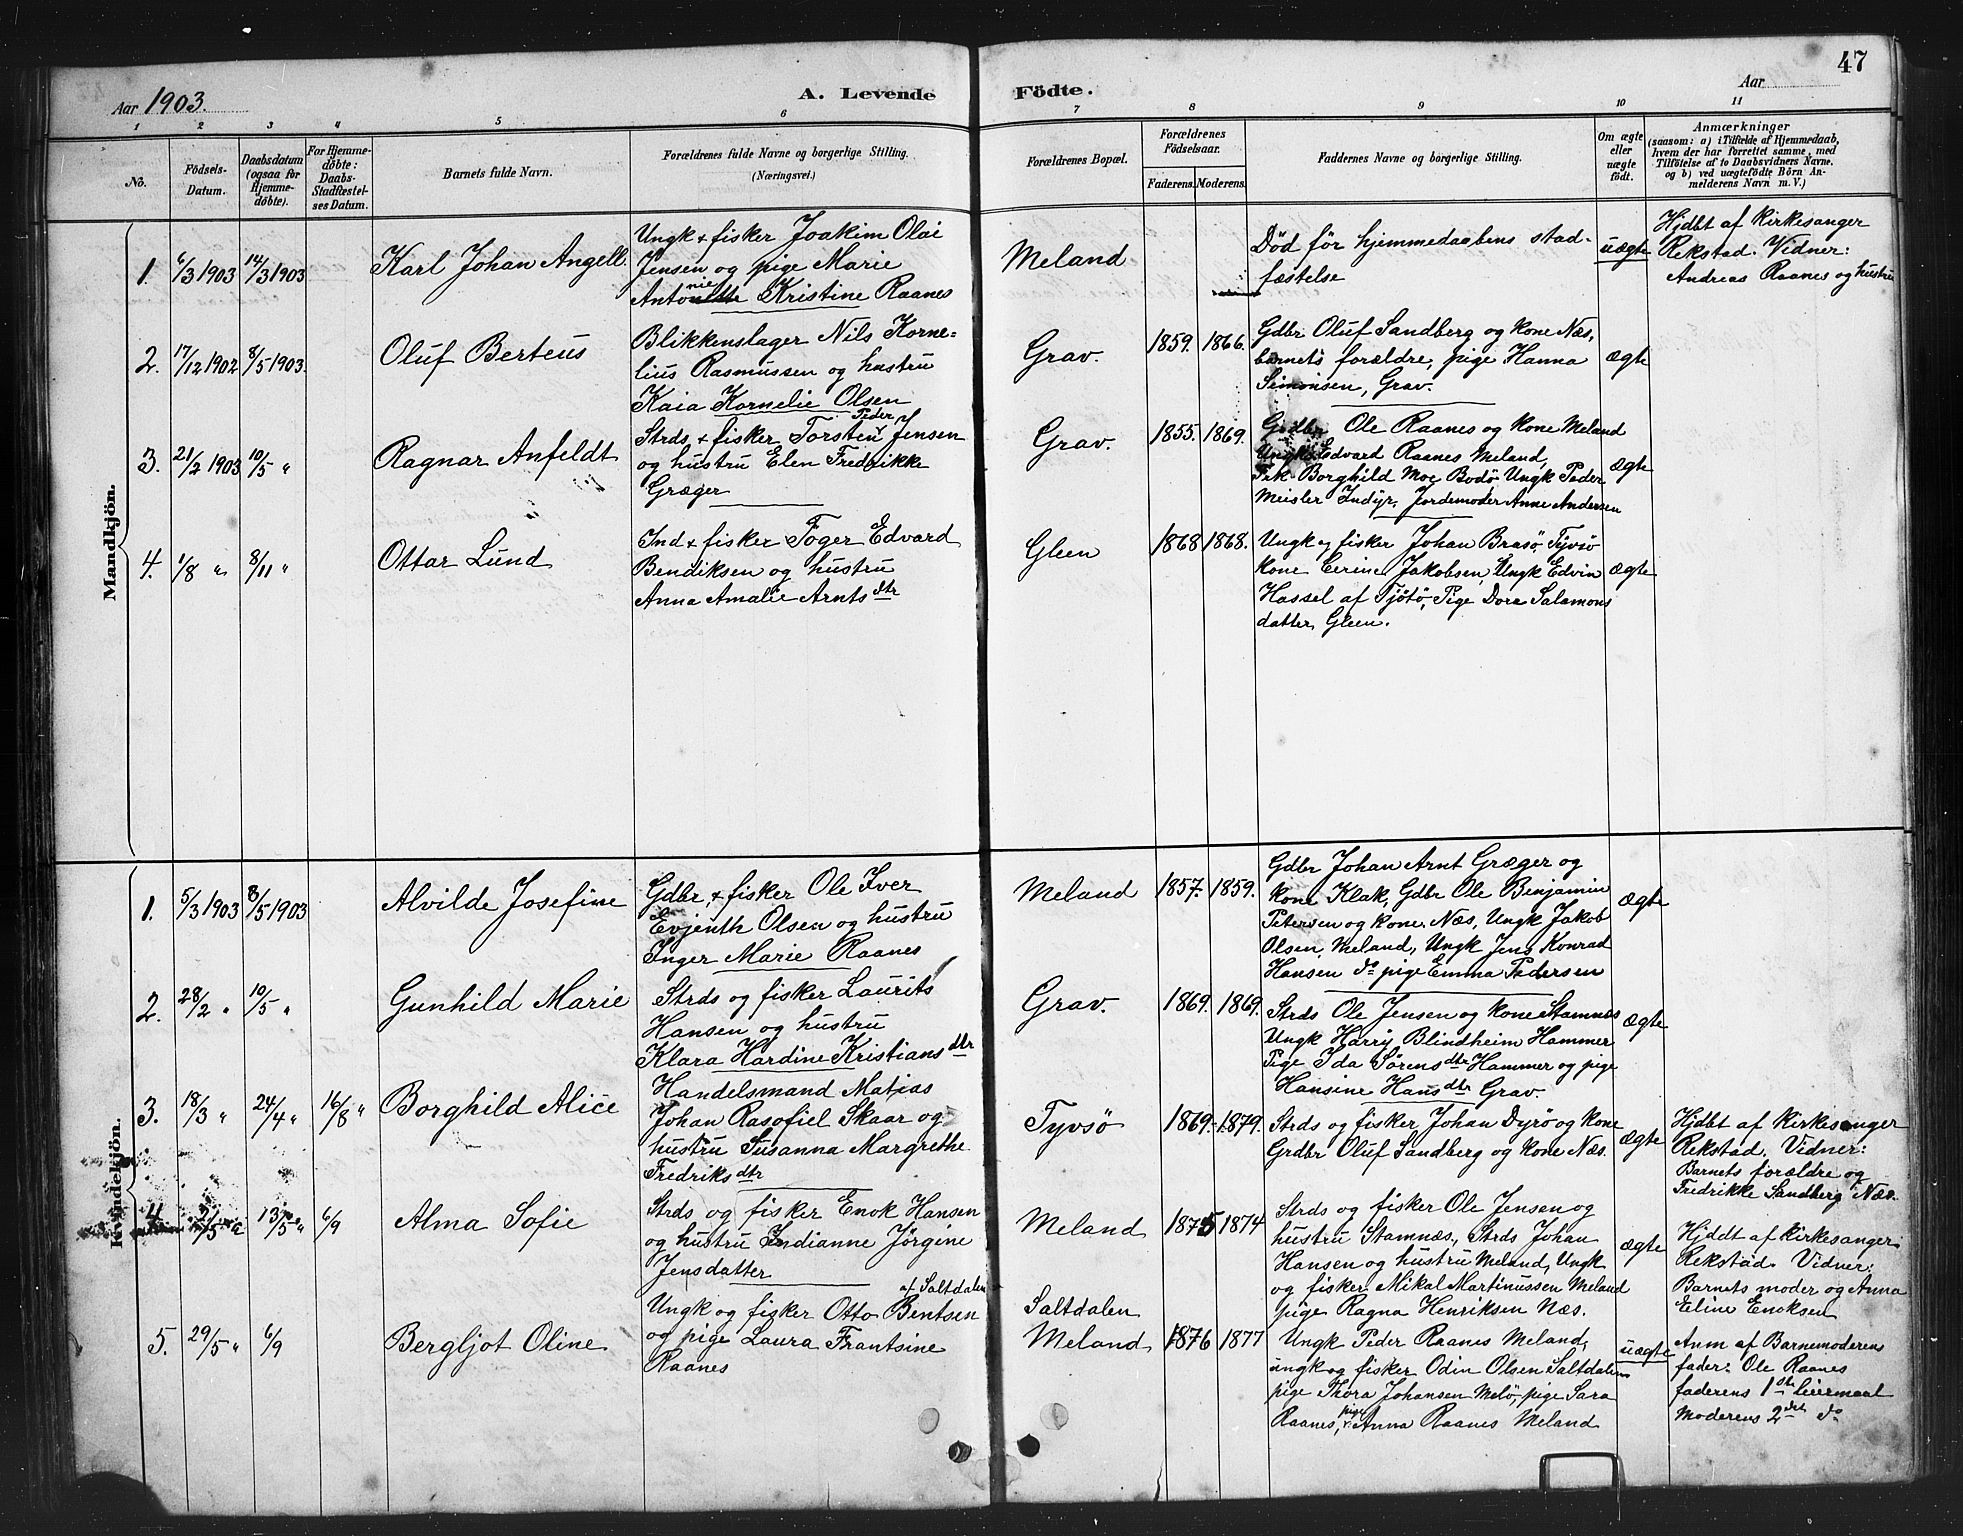 47
Aar 1903.
A. Levende Födte.
Aar
1 2 3 4 5 6 7 8 9 10 11
No.
Födsels-
Datum.
Daabsdatum
(ogsaa for
Hjemme-
döbte).
For Hjemme-
döbte:
Daabs-
Stadfæstel-
ses Datum.
Barnets fulde Navn.
Forældrenes fulde Navne og borgerlige Stilling.
(Næringsvei.)
Forældrenes Bopæl.
Forældrenes
Födselsaar.
Faderens. Moderens.
Faddernes Navne og borgerlige Stilling.
Om ægte
eller
uægte
født.
Anmærkninger
(saasom: a) i Tilfælde af Hjemmedaab,
hvem der har forrettet samme, med
Tilföielse af to Daabsvidners Navne.
og b) ved uægtefödte Börn An-
melderens Navn m. V.)
Mandkjön.
1. 6/3 1903 14/3 1903
Karl Johan Angell.
Ungk + fisker Joakim Olai
Jensen og pige Marie
Antonie Kristine Raanes
Meland
Död för hjemmedaabens stad-
fæstelse
uægte
Hjdbt af Kirkesanger
Rekstad. Vidner:
Andreas Raanes og hustru
2. 17/12 1902 8/5 1903.
Oluf Berteus
Blikkenslager Nils Korne-
lius Rasmussen og hustru
Kaia Kornelie Olsen
Grav.
1859. 1866.
Gdbr. Oluf Sandberg og kone Næs,
barnets forældre, pige Hanna
Simonsen, Grav.
ægte
3. 21/2 1903 10/5 "
Ragnar Anfeldt
Strds + fisker Torsten Peder Jensen
og hustru Elen Fredrikke
Græger
Grav.
1855. 1869.
Gdbr Ole Raanes og kone Meland
Ungk Edvard Raanes Meland,
Frk Borghild Moe Bodö, Ungk Peder
Meisler Indyr, Jordemoder Anne Andersen
ægte
4. 1/8 " 8/11 "
Ottar Lund
Ind + fisker Töger Edvard
Bendiksen og hustru
Anna Amalie Arnts dtr
Gleen
1868 1868.
Ungk og fisker Johan Brasö, Tyvsö
kone Eerine Jakobsen, Ungk Edvin
Hassel af Tjötö, Pige Dora Salamons
datter, Gleen.
ægte
Kvindekjön.
1. 5/3 1903 8/5 1903
Alvilde Josefine
Gdbr. + fisker Ole Iver
Evjenth Olsen og hustru
Inger Marie Raanes
Meland
1857. 1859.
Gdbr Johan Arnt Græger og
kone Klak, Gdbr Ole Benjamin
Petersen og kone Næs, Ungk Jakob
Olsen, Meland, Ungk Jens Konrad
Hansen do pige Emma Pedersen
ægte
2. 28/2 " 10/5 "
Gunhild Marie
Strds og fisker Laurits
Hansen og hustru
Klara Hardine Kristians dtr
Grav.
1869. 1869.
Strds Ole Jensen og kone Stamnæs
Ungk Harry Blindheim Hammer
Pige Ida Sörens dtr Hammer og pige
Hansine Hans dtr Grav.
ægte
3. 18/3 " 24/4 " 16/8 "
Borghild Alice
Handelsmand Matias
Johan Rasofiel Skaar og
hustru Susanna Margrethe
Fredriks dtr
Tyvsö
1869. 1879.
Strds og fisker Johan Dyrö og kone
Grdbr Oluf Sandberg og kone Næs.
ægte
Hjdbt af Kirkesanger
Rekstad. Vidner:
Barnets forældre og
Fredrikke Sandberg Næs.
4 13/5 " 6/9
Alma Sofie
Strds og fisker Enok Hansen
og hustru Indianne Jörgine
Jensdatter
Meland
1875 1874
Strds og fisker Ole Jensen og
hustru Stamnæs, Strds Johan
Hansen og hustru Meland, Ungk
og fisker Mikal Martinussen Meland
pige Ragna Henriksen Næs.
ægte
Hjddt af kirkesanger
Rekstad. Vidner:
Barnets moder og Anna
Eline Enoksen
5. 29/5 " 6/9
Bergljot Oline
af Saltdalen
Ungk og fisker Otto Bentsen
og pige Laura Frantsine
Raanes
Saltdalen
Meland
1876 1877
Ungk Peder Raanes Meland,
ungk og fisker Odin Olsen Saltdalen
pige Thora Johansen Melö, pige Sara
Raanes, pige Anna Raanes Meland
uægte
Anm af Barnemoderens
fader: Ole Raanes
faderens 1ste leiermaal
moderens 2det do